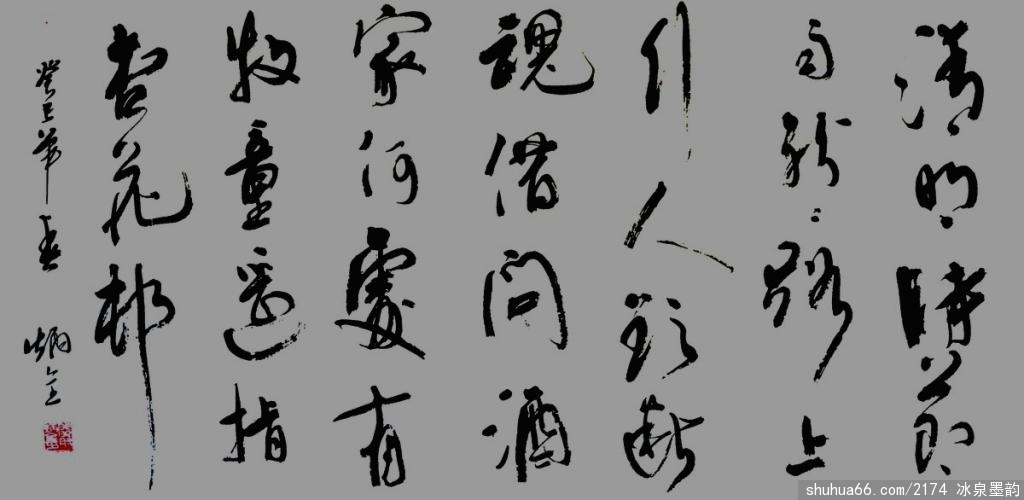 清明時節
雨紛々路上
行人欲斷
魂借问酒
家何處有
牧童遥指
杏花邨
癸巳年春 炳全
shuhua66.com/2174 冰泉墨韵